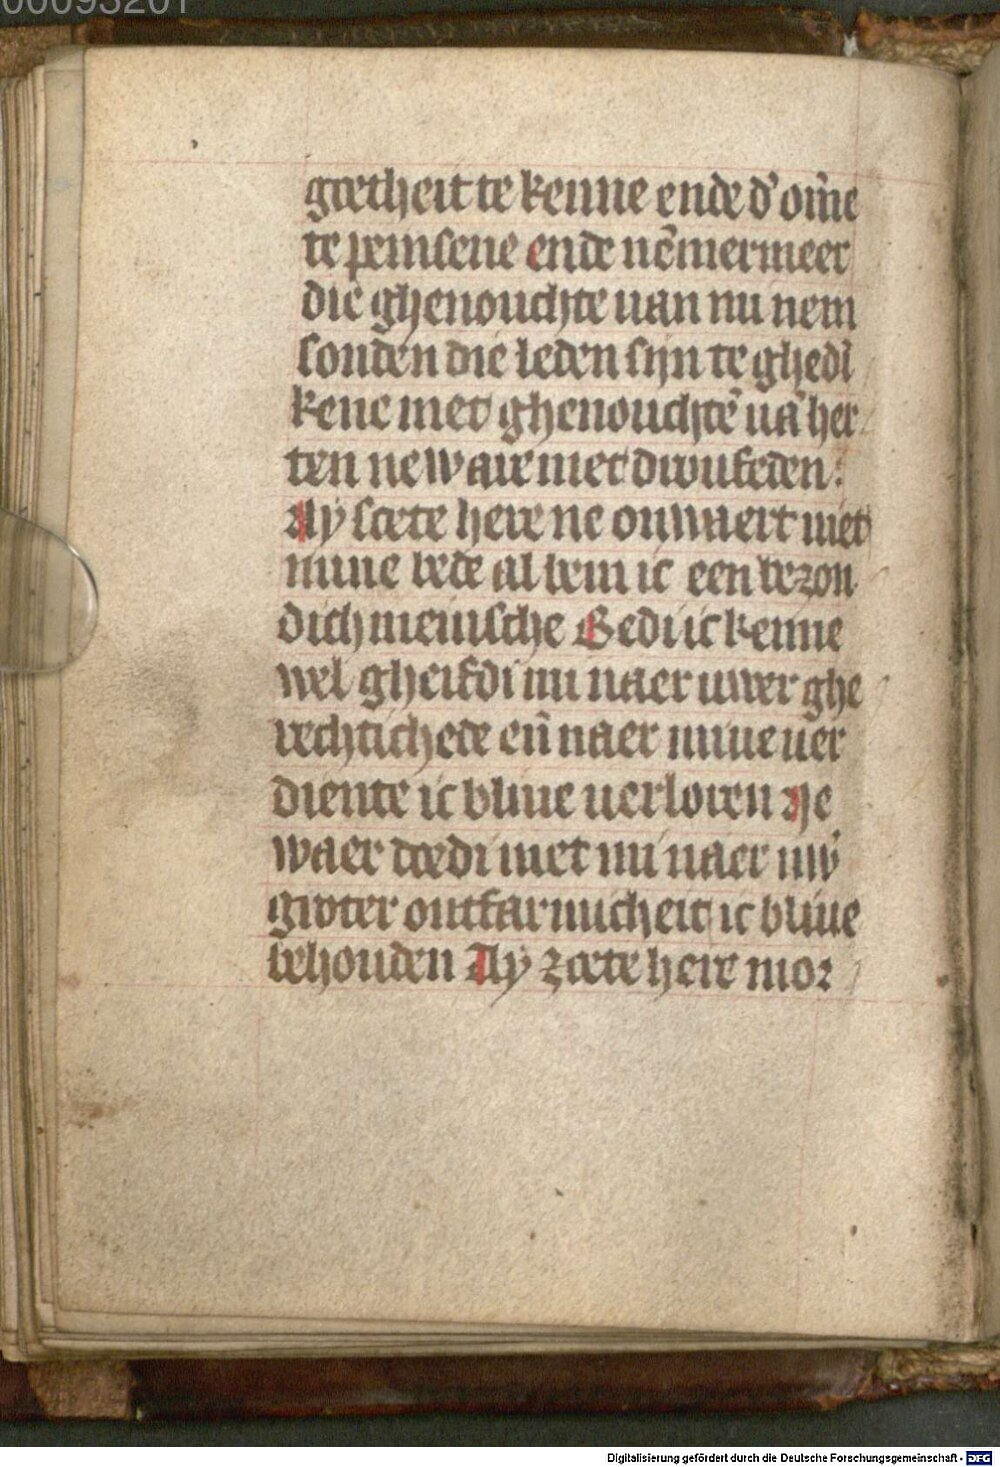 00093201
goetheit te kenne ende d'om̄e
te peinsene ende nēmermeer
die ghenouchte uan mi nem
sonden die leden sijn te ghedī
kene met ghenouchtē uā her
ten ne ware met droufeden:
Ay soete here ne onwaert niet
mine bede al bem ic een bezon
dich mensche Gedi ic kenne
wel gheifdi mi naer uwer ghe
rechtichede eñ naer mine uer
diente ic bliue uerloren Ne
waer doedi met mi naer uw'
groter ontfarmicheit ic bliue
behouden Ay zoete here moz
Digitalisierung gefördert durch die Deutsche Forschungsgemeinschaft - DFG